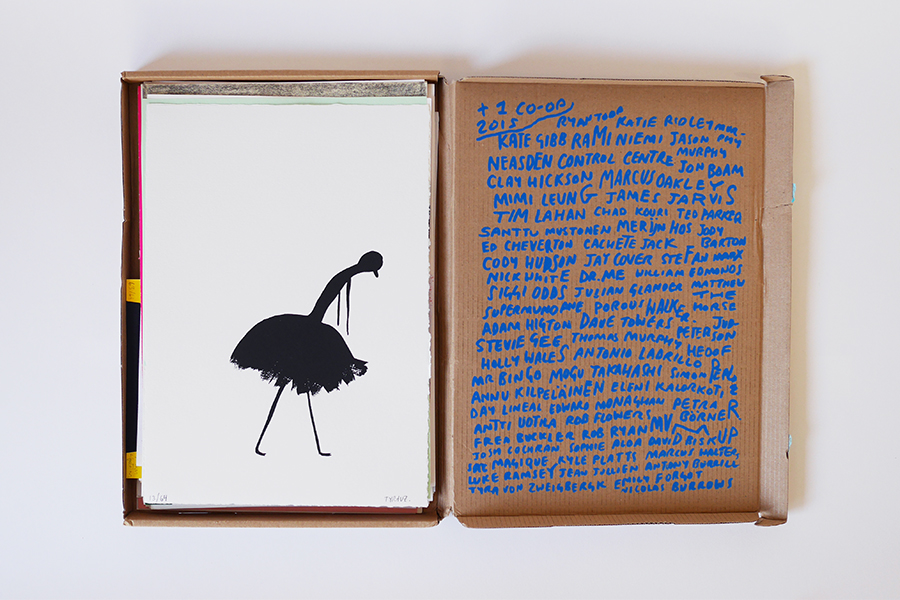 + 1 CO-OP
2015 RYAN TODD KATIE RIDLEY MUR-
KATE GIBB RAMI NIEMI JASON PHY
NEASDEN CONTROL CENTRE MURPHY
CLAY HICKSON MARCUS OAKLEY JON BOAM
MIMI LEUNG JAMES JARVIS
TIM LAHAN CHAD KOURI TED PARKER
SANTTU MUSTONEN MERIJN HOS JODY
ED CHEVERTON CACHETE JACK BARTON
CODY HUDSON JAY COVER STEFAN MARX
NICK WHITE DR. ME WILLIAM EDMONDS
SIGGI ODDS JULIAN GLANDER MATTHEW
SUPERMUNDANE POROUS WALKER THE
ADAM HIGTON DAVE TOWERS HORSE
STEVIE GEE THOMAS MURPHY JUD- PETERSON
HOLLY WALES ANTONIO LADRILLO HEDOF
MR BINGO MOGU TAKAHASHI SIMON
ANNU KILPELÄINEN ELENI KALORKOTI
DAY LINEAL EDWARD MONAGHAN PETRA
ANTTI UOTILA ROB FLOWERS BÖRNER
FRED BUCKLER ROB RYAN
JOSH COCHRAN SOPHIE ALDA DAVID
SAC MAGIQUE KYLE PLATTS MARCUS WALTER,
LUKE RAMSEY JEAN JULLIEN ANTHONY BURRILL
TYRA VON ZWEIGBERGK EMILY FORGOT
NICOLAS BURROWS